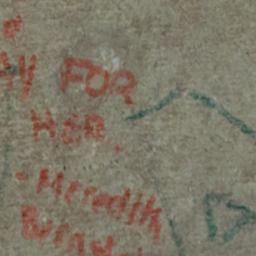 All FOR
HER.
- Meredith